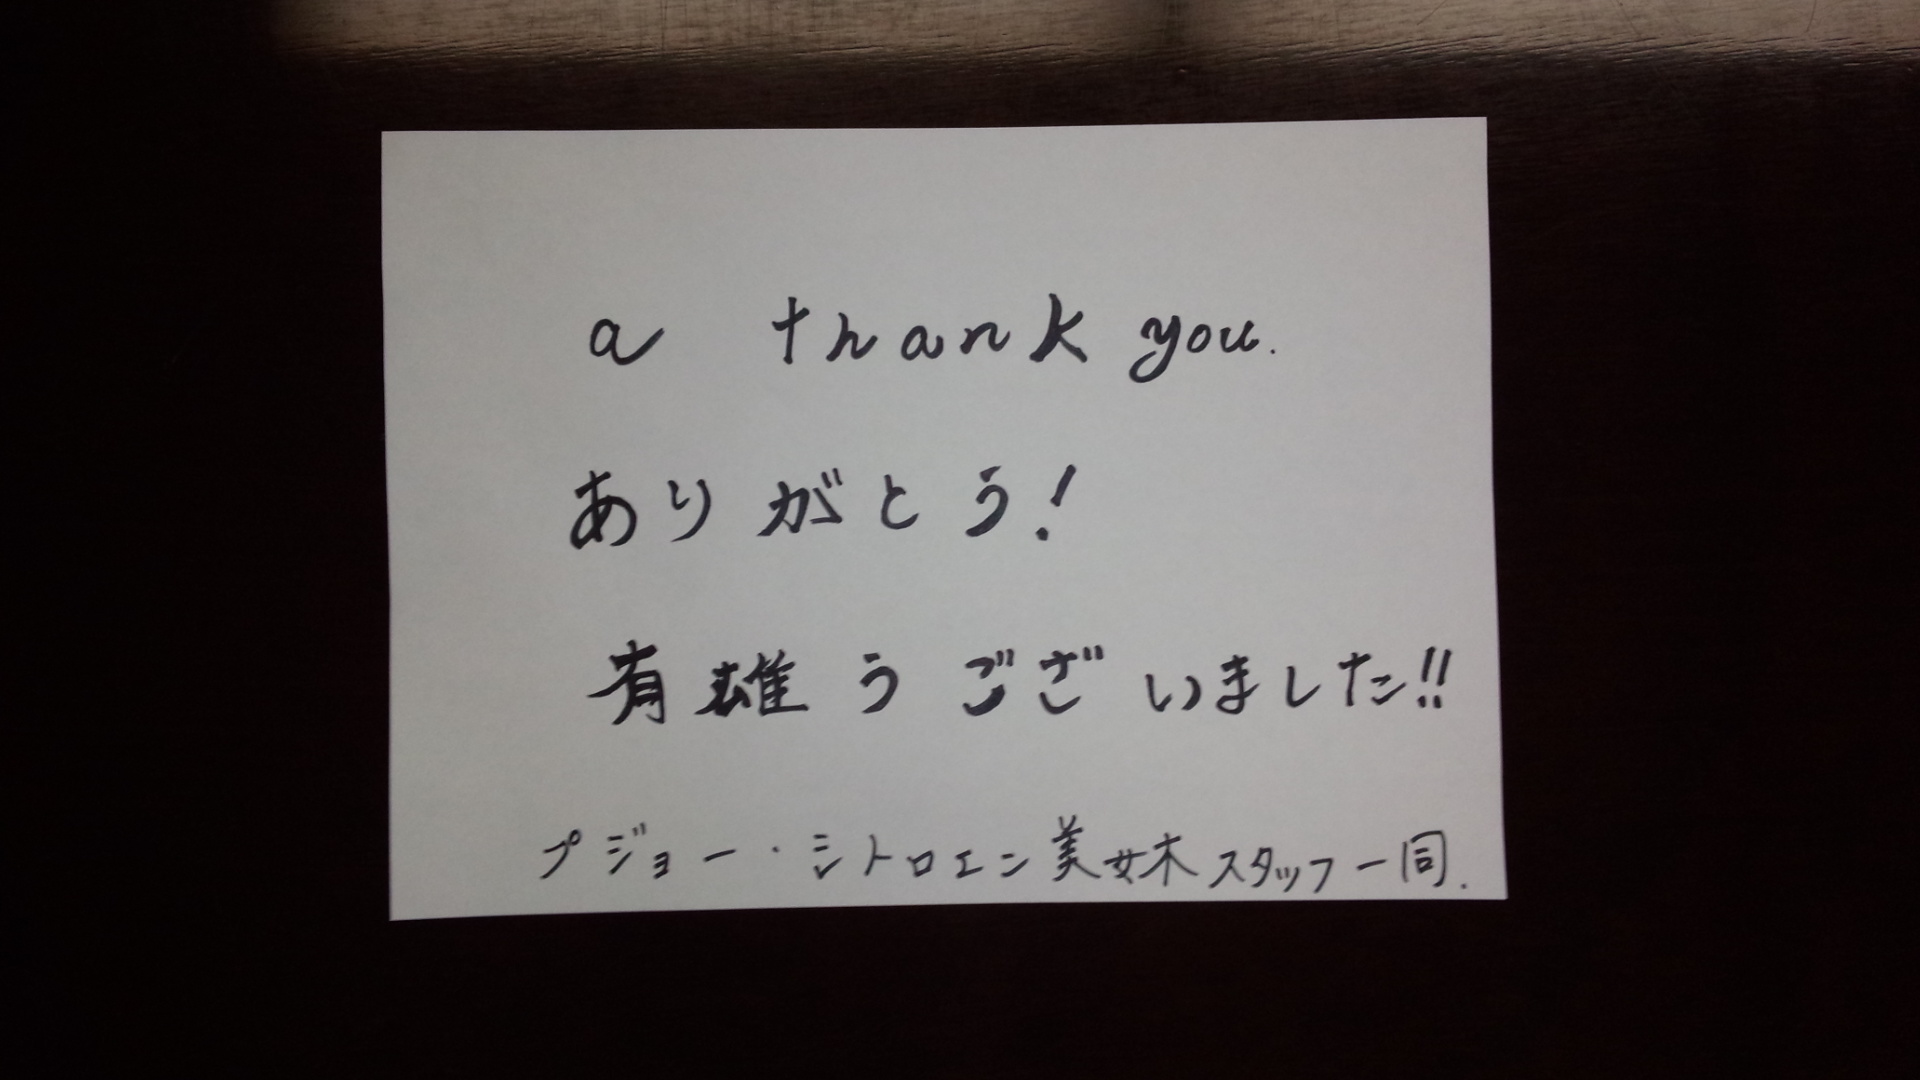 a thank you.
ありがとう!
有雄うございました!!
プジョー・シトロエン美女木スタッフ一同.